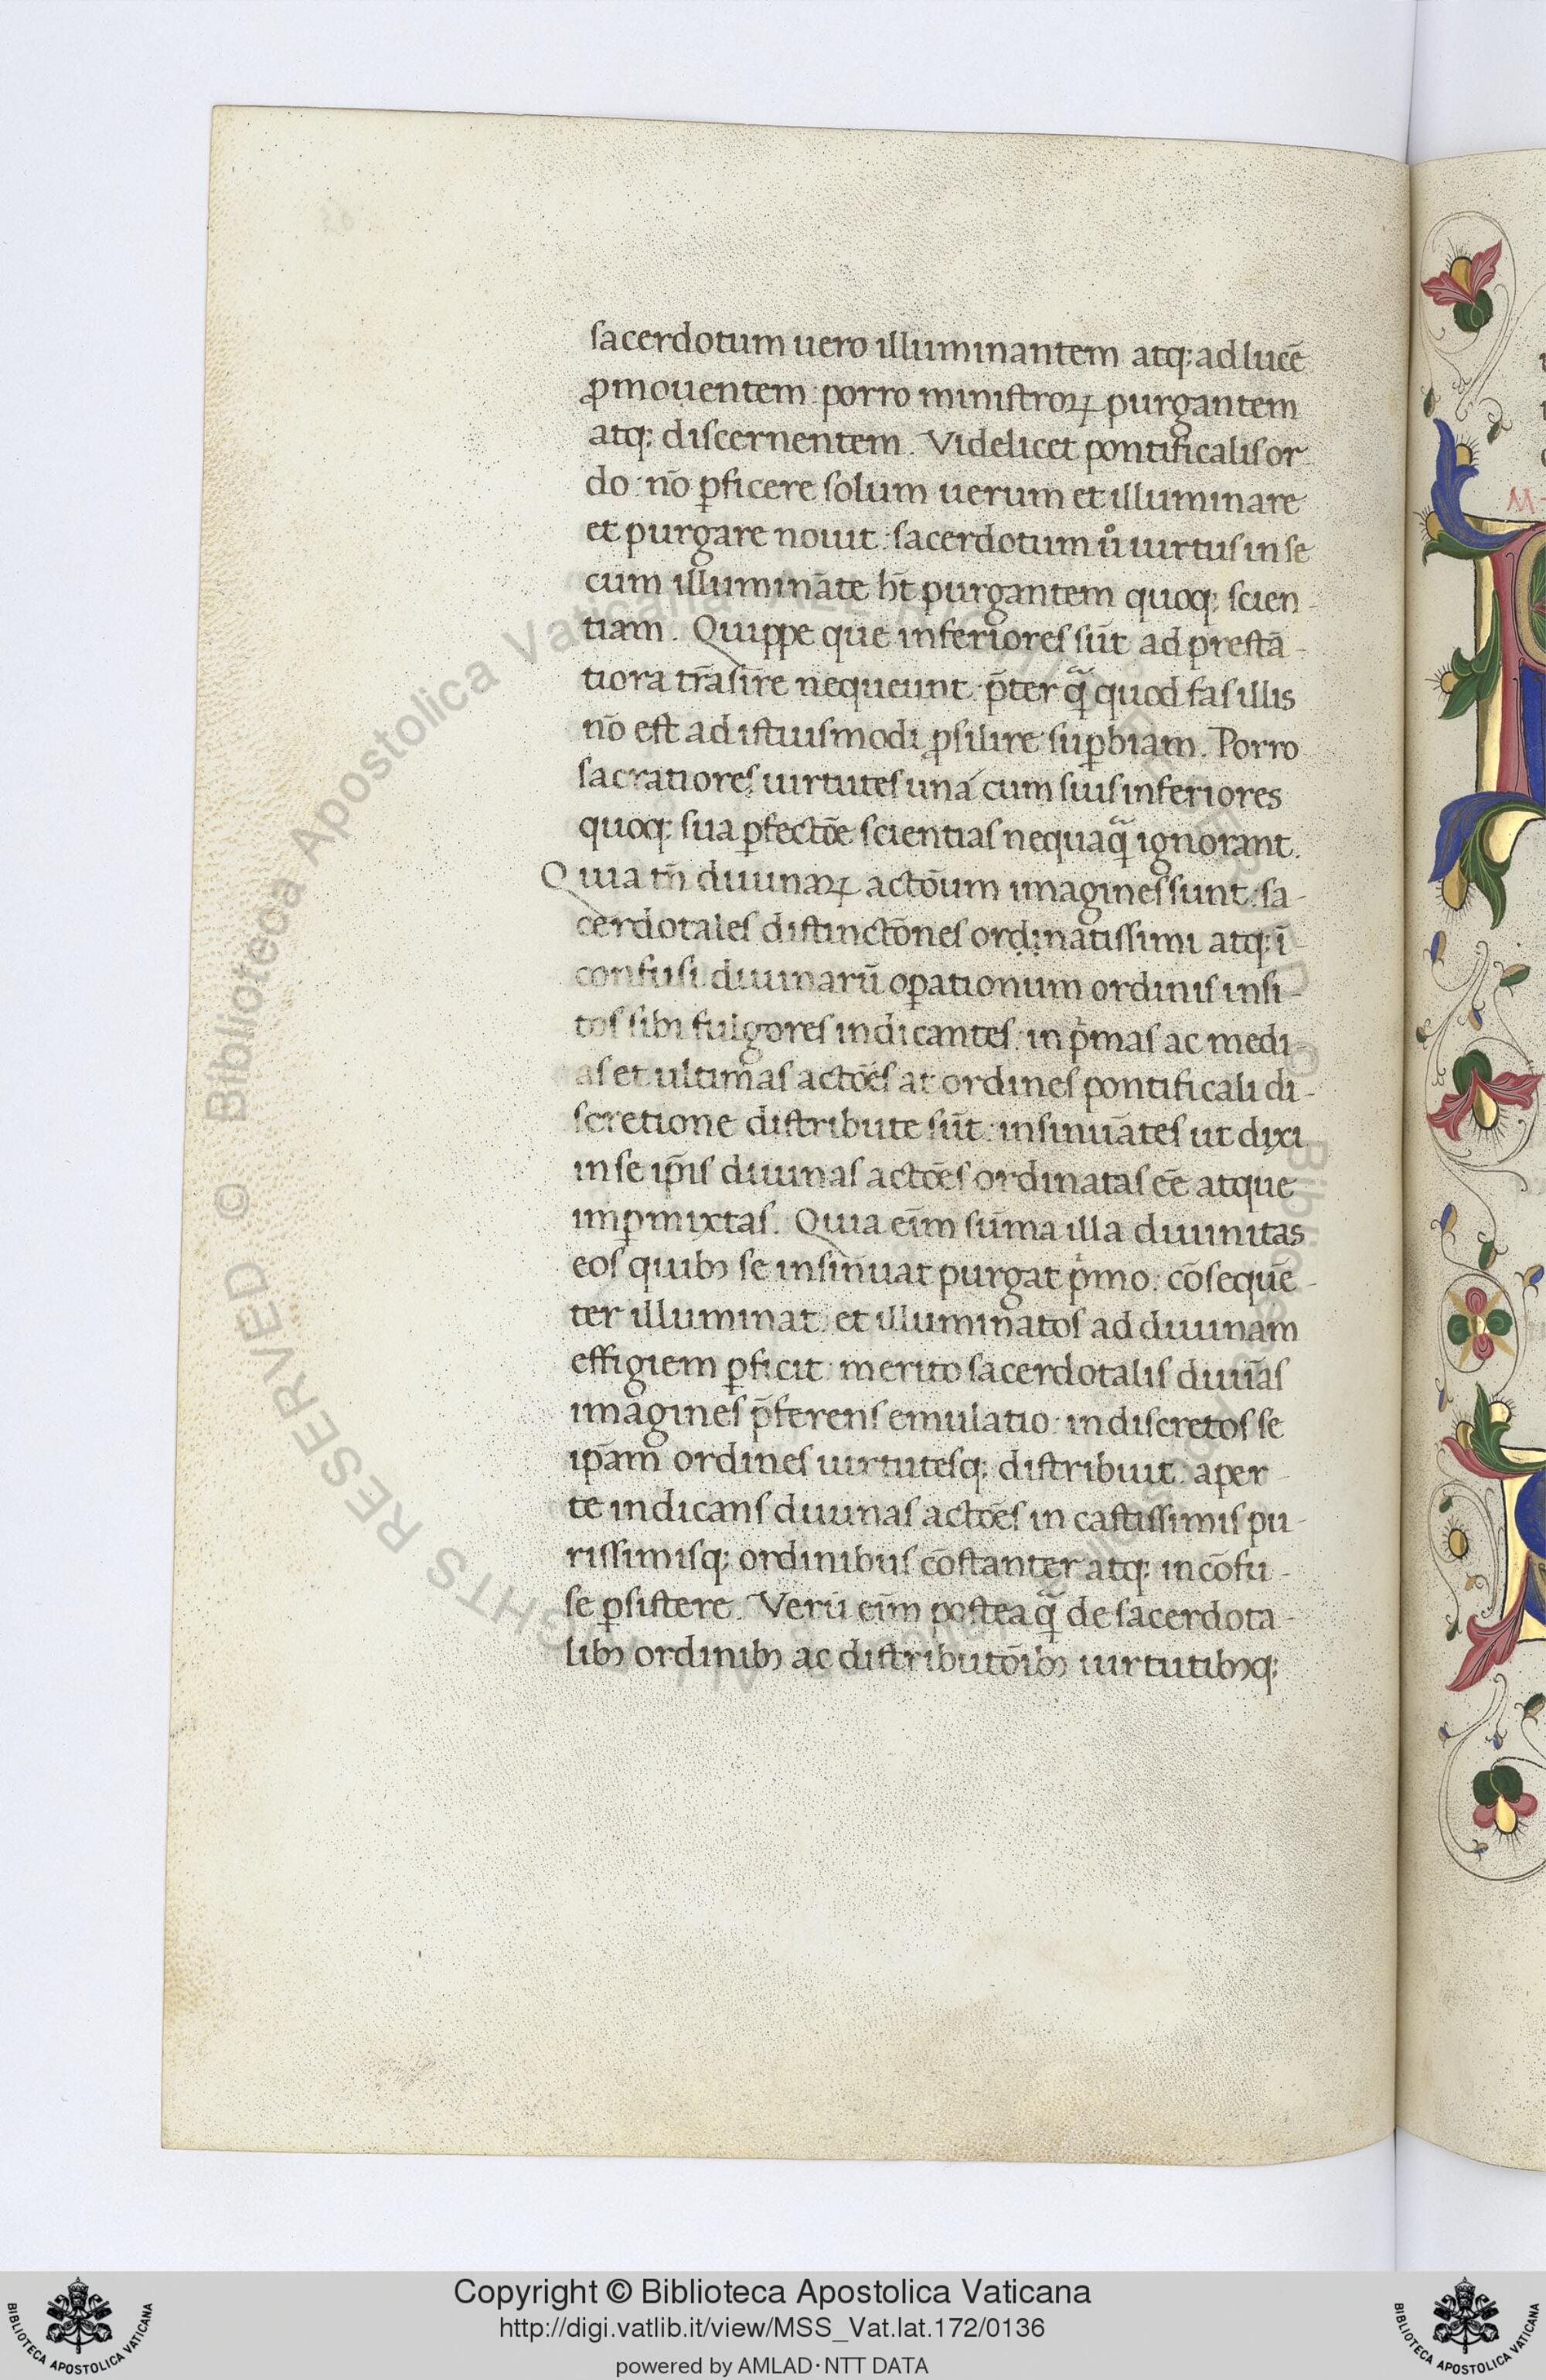 sacerdotum uero illuminantem atq; ad lucē
ꝓmouentem: porro ministroꝝ purgantem
atq; discernentem. Videlicet pontificalis or
do: nō ꝑficere solum uerum et illuminare
et purgare nouit: sacerdotum u̇o uirtus in se
cum illumināte hn̄t purgantem quoq; scien-
tiam. Quippe que inferiores sūt ad prestā-
tiora trāsire nequeunt: p̄ter q̄ quod fas illis
nō est ad istiusmodi ꝓsilire suꝑbiam. Porro
sacratiores uirtutes unà cum suis inferiores
quoq; sua ꝑfectōe scientias nequaq̄ ignorant.
Quia tn̄ diuinaꝝ actōum imagines sunt: sa-
cerdotales distinctōnes ordinatissimi atq; ī-
confusi diuinarū oꝑationum ordinis insi-
tos sibi fulgores indicantes: in pͥmas ac medi-
as et ultimas actōes at ordines pontificali di-
scretione distribute sūt: insinuātes ut dixi
in se ip̄is diuinas actōes ordinatas eē atque
imꝑmixtas. Quia eīm sūma illa diuinitas
eos quibꝫ se insinuat purgat pͥmo: cōsequē-
ter illuminat: et illuminatos ad diuinam
effigiem ꝑficit: merito sacerdotalis diuīas
imagines p̄ferens emulatio: in discretos se
ip̄am ordines uirtutesq; distribuit: aper-
te indicans diuinas actōes in castissimis pu-
rissimisq; ordinibus cōstanter atq; incōfu-
se ꝑsistere. Verū eīm posteaq̄ de sacerdota-
libꝫ ordinibꝫ ac distributōibꝫ uirtutibꝫq;
Copyright © Biblioteca Apostolica Vaticana
http://digi.vatlib.it/view/MSS_Vat.lat.172/0136
powered by AMLAD·NTT DATA
BIBLIOTECA APOSTOLICA VATICANA
BIBLIOTECA APOSTOLICA VATICANA